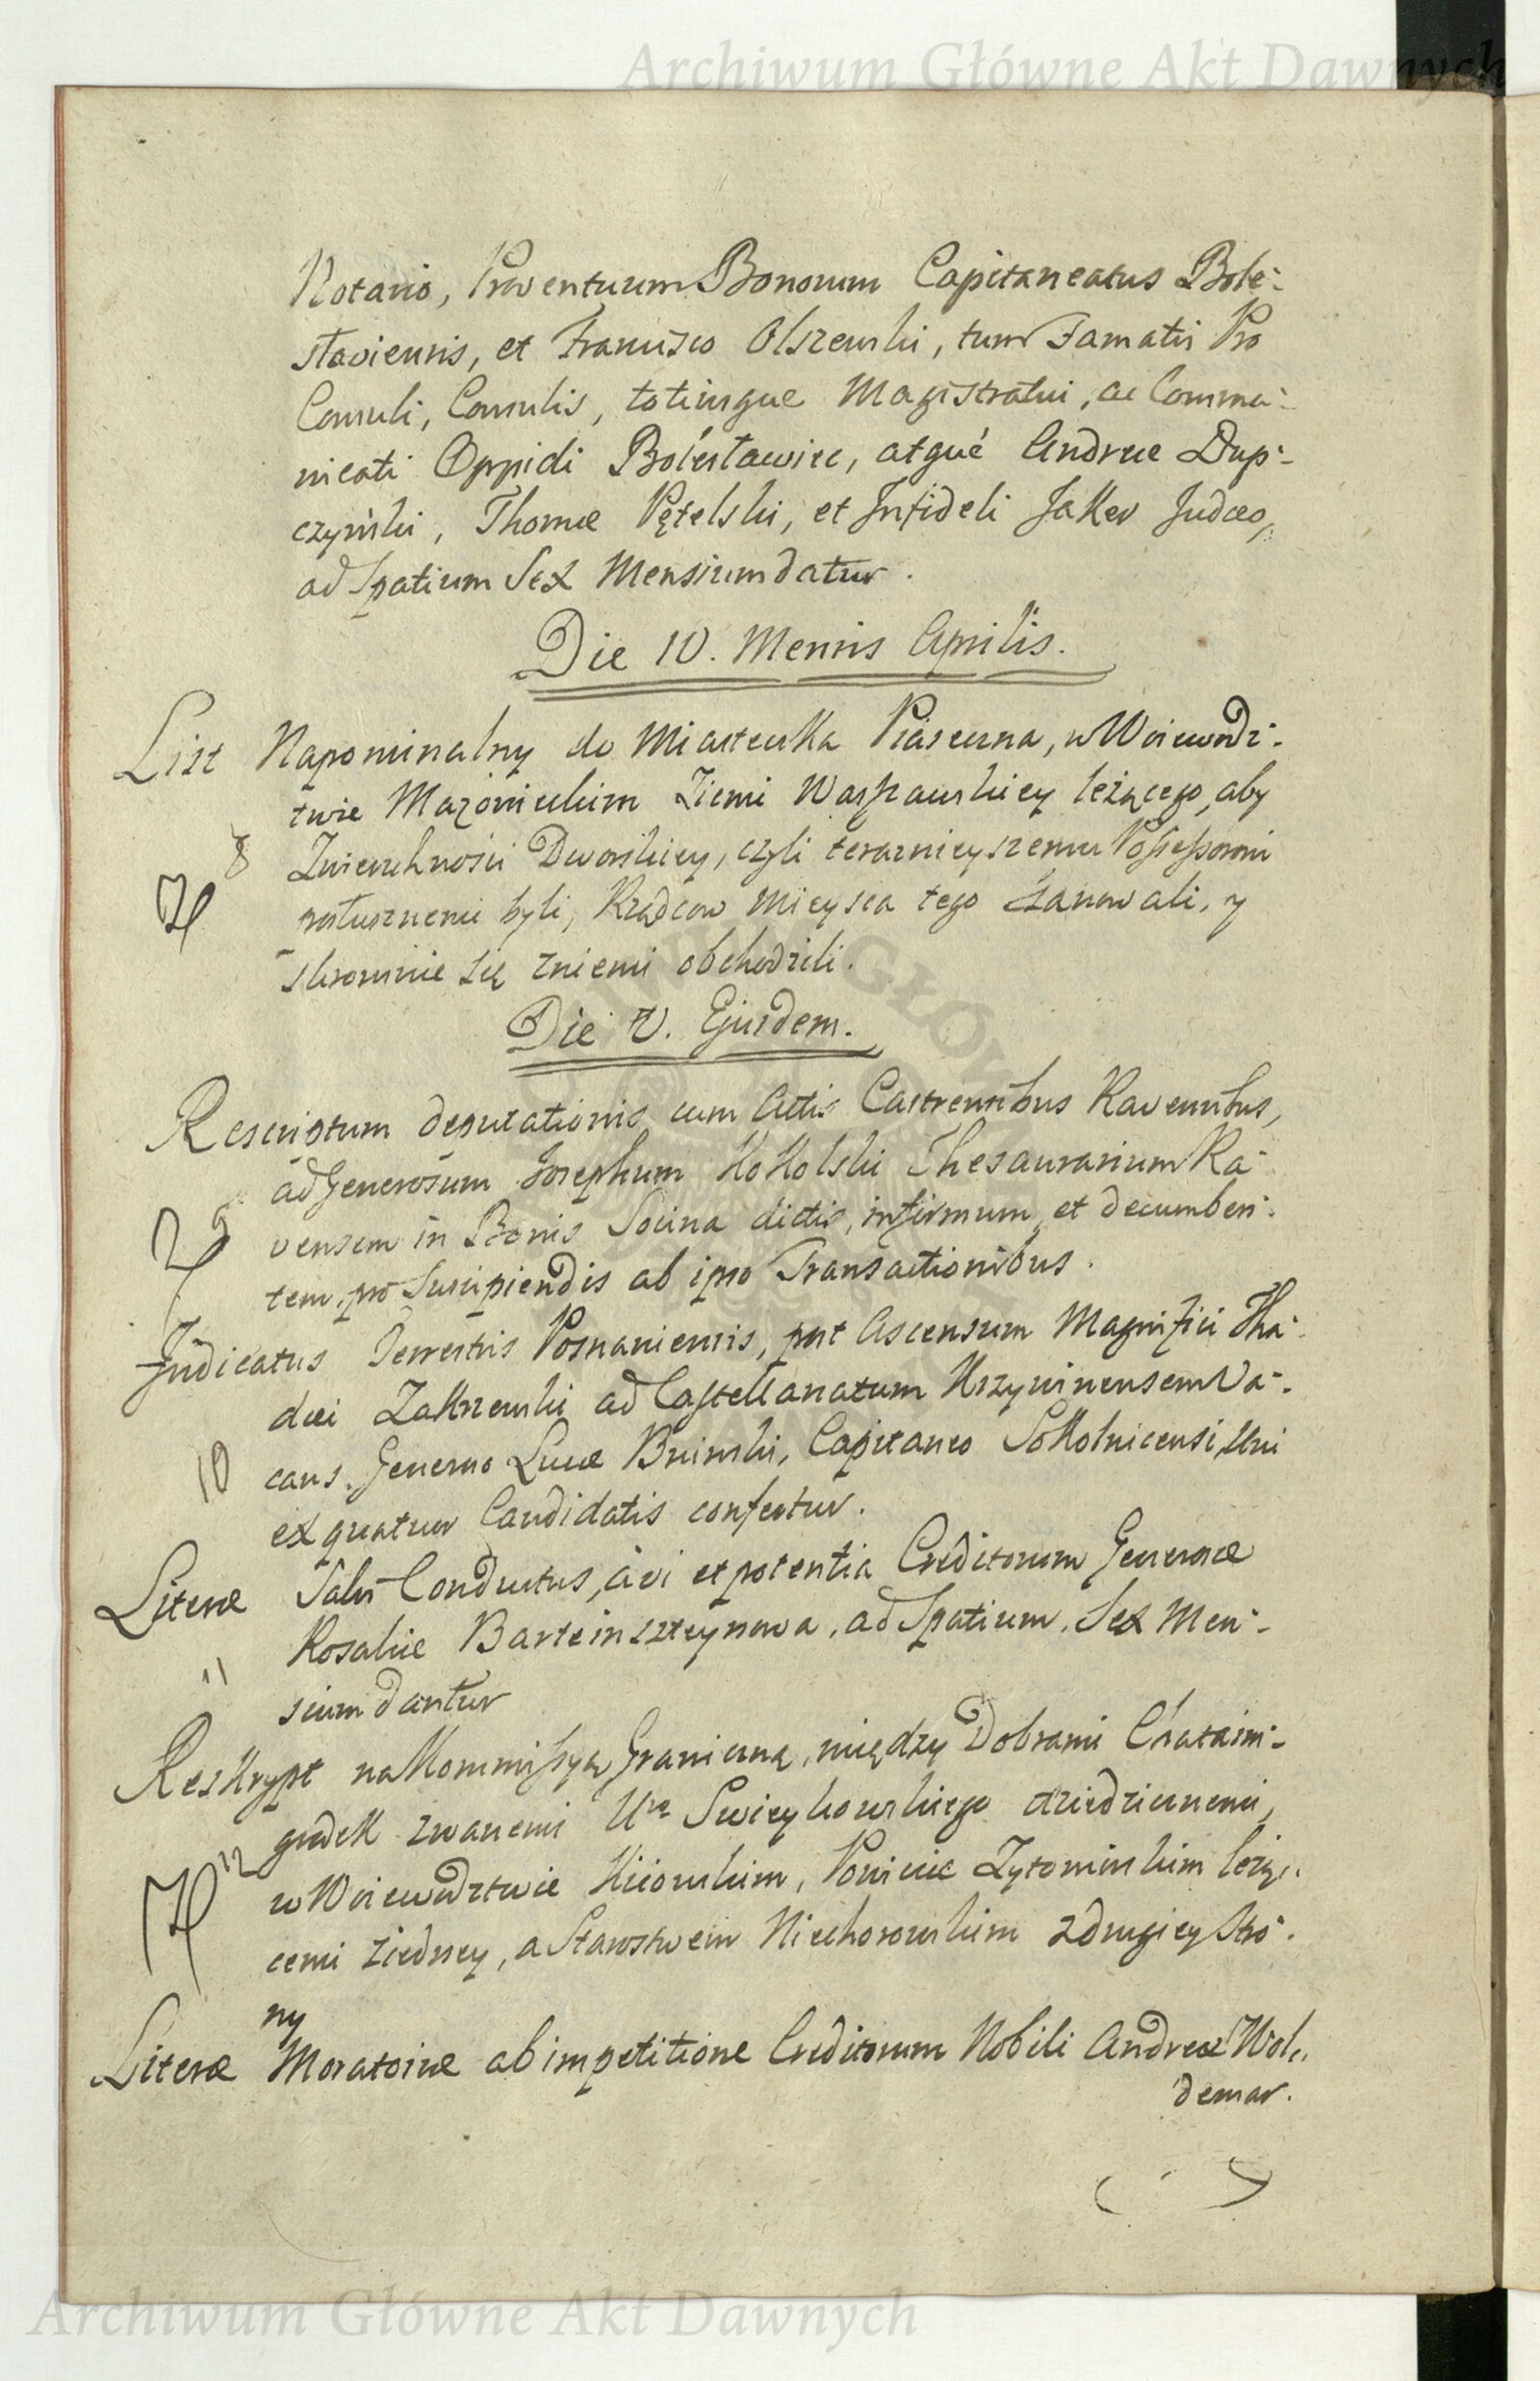 Archiwum Główne Akt Dawnych
Notario, Proventuum Bonorum Capitaneatus Bole-
slaviensis, et Francisco Olszewski, tum Famatis Pro
Consuli, Consulis, totiusque Magistratui, ac Commu-
nitati Oppidi Bolesławiec, atque Andreæ Dup-
czyński, Thomæ Pętelski, et Infideli Jakev Judæo,
ad Spatium Sex Mensium datur.
Die 10. Mensis Aprilis.
List Napominalny do Miasteczka Piaseczna, w Woiewodz-
twie Mazowieckim Ziemi Warszawskiey leżącego, aby
8 Zwierzchności Dworskiey, czyli teraznieyszemu Possessorowi
posłusznemi byli, Rządcow Mieysca tego szanowali, y
skromnie się zniemi obchodzili.
Die V. Ejusdem.
Rescriptum deputationis cum Actis Castrensibus Ravensibus,
ad Generosum Josephum Kokolski Thesaurarium Ra-
9 vensem in Bonis Socina dictis, infirmum, et decumben-
tem, pro Suscipiendis ab ipso Transactionibus.
Judicatus Terrestris Posnaniensis, post Ascensum Magnifici Tha-
dæi Zakrzewski ad Castellanatum Krzywinensem Va-
10 cans. Generoso Lucæ Bninski, Capitaneo Sokolnicensi, Uni
ex quatuor Candidatis confertur.
Literæ Salvi Conductus, à vi et potentia Creditorum Generosæ
Rosaliæ Barteinszteynowa, ad Spatium Sex Men-
11 sium dantur
Reskrypt na Kommissyą Graniczną, między Dobrami Chataim-
12 gródek zwanemi Uro Swieykowskiego dziedzicznemi,
w Woiewodztwie Kiiowskim, Powiecie Zytomirskim leżą-
cemi ziedney, a Starostwem Niechorowskim zdrugiey Stro-
ny
Literæ Moratoriæ ab impetitione Creditorum Nobili Andreæ Wol-
demar.
Archiwum Główne Akt Dawnych